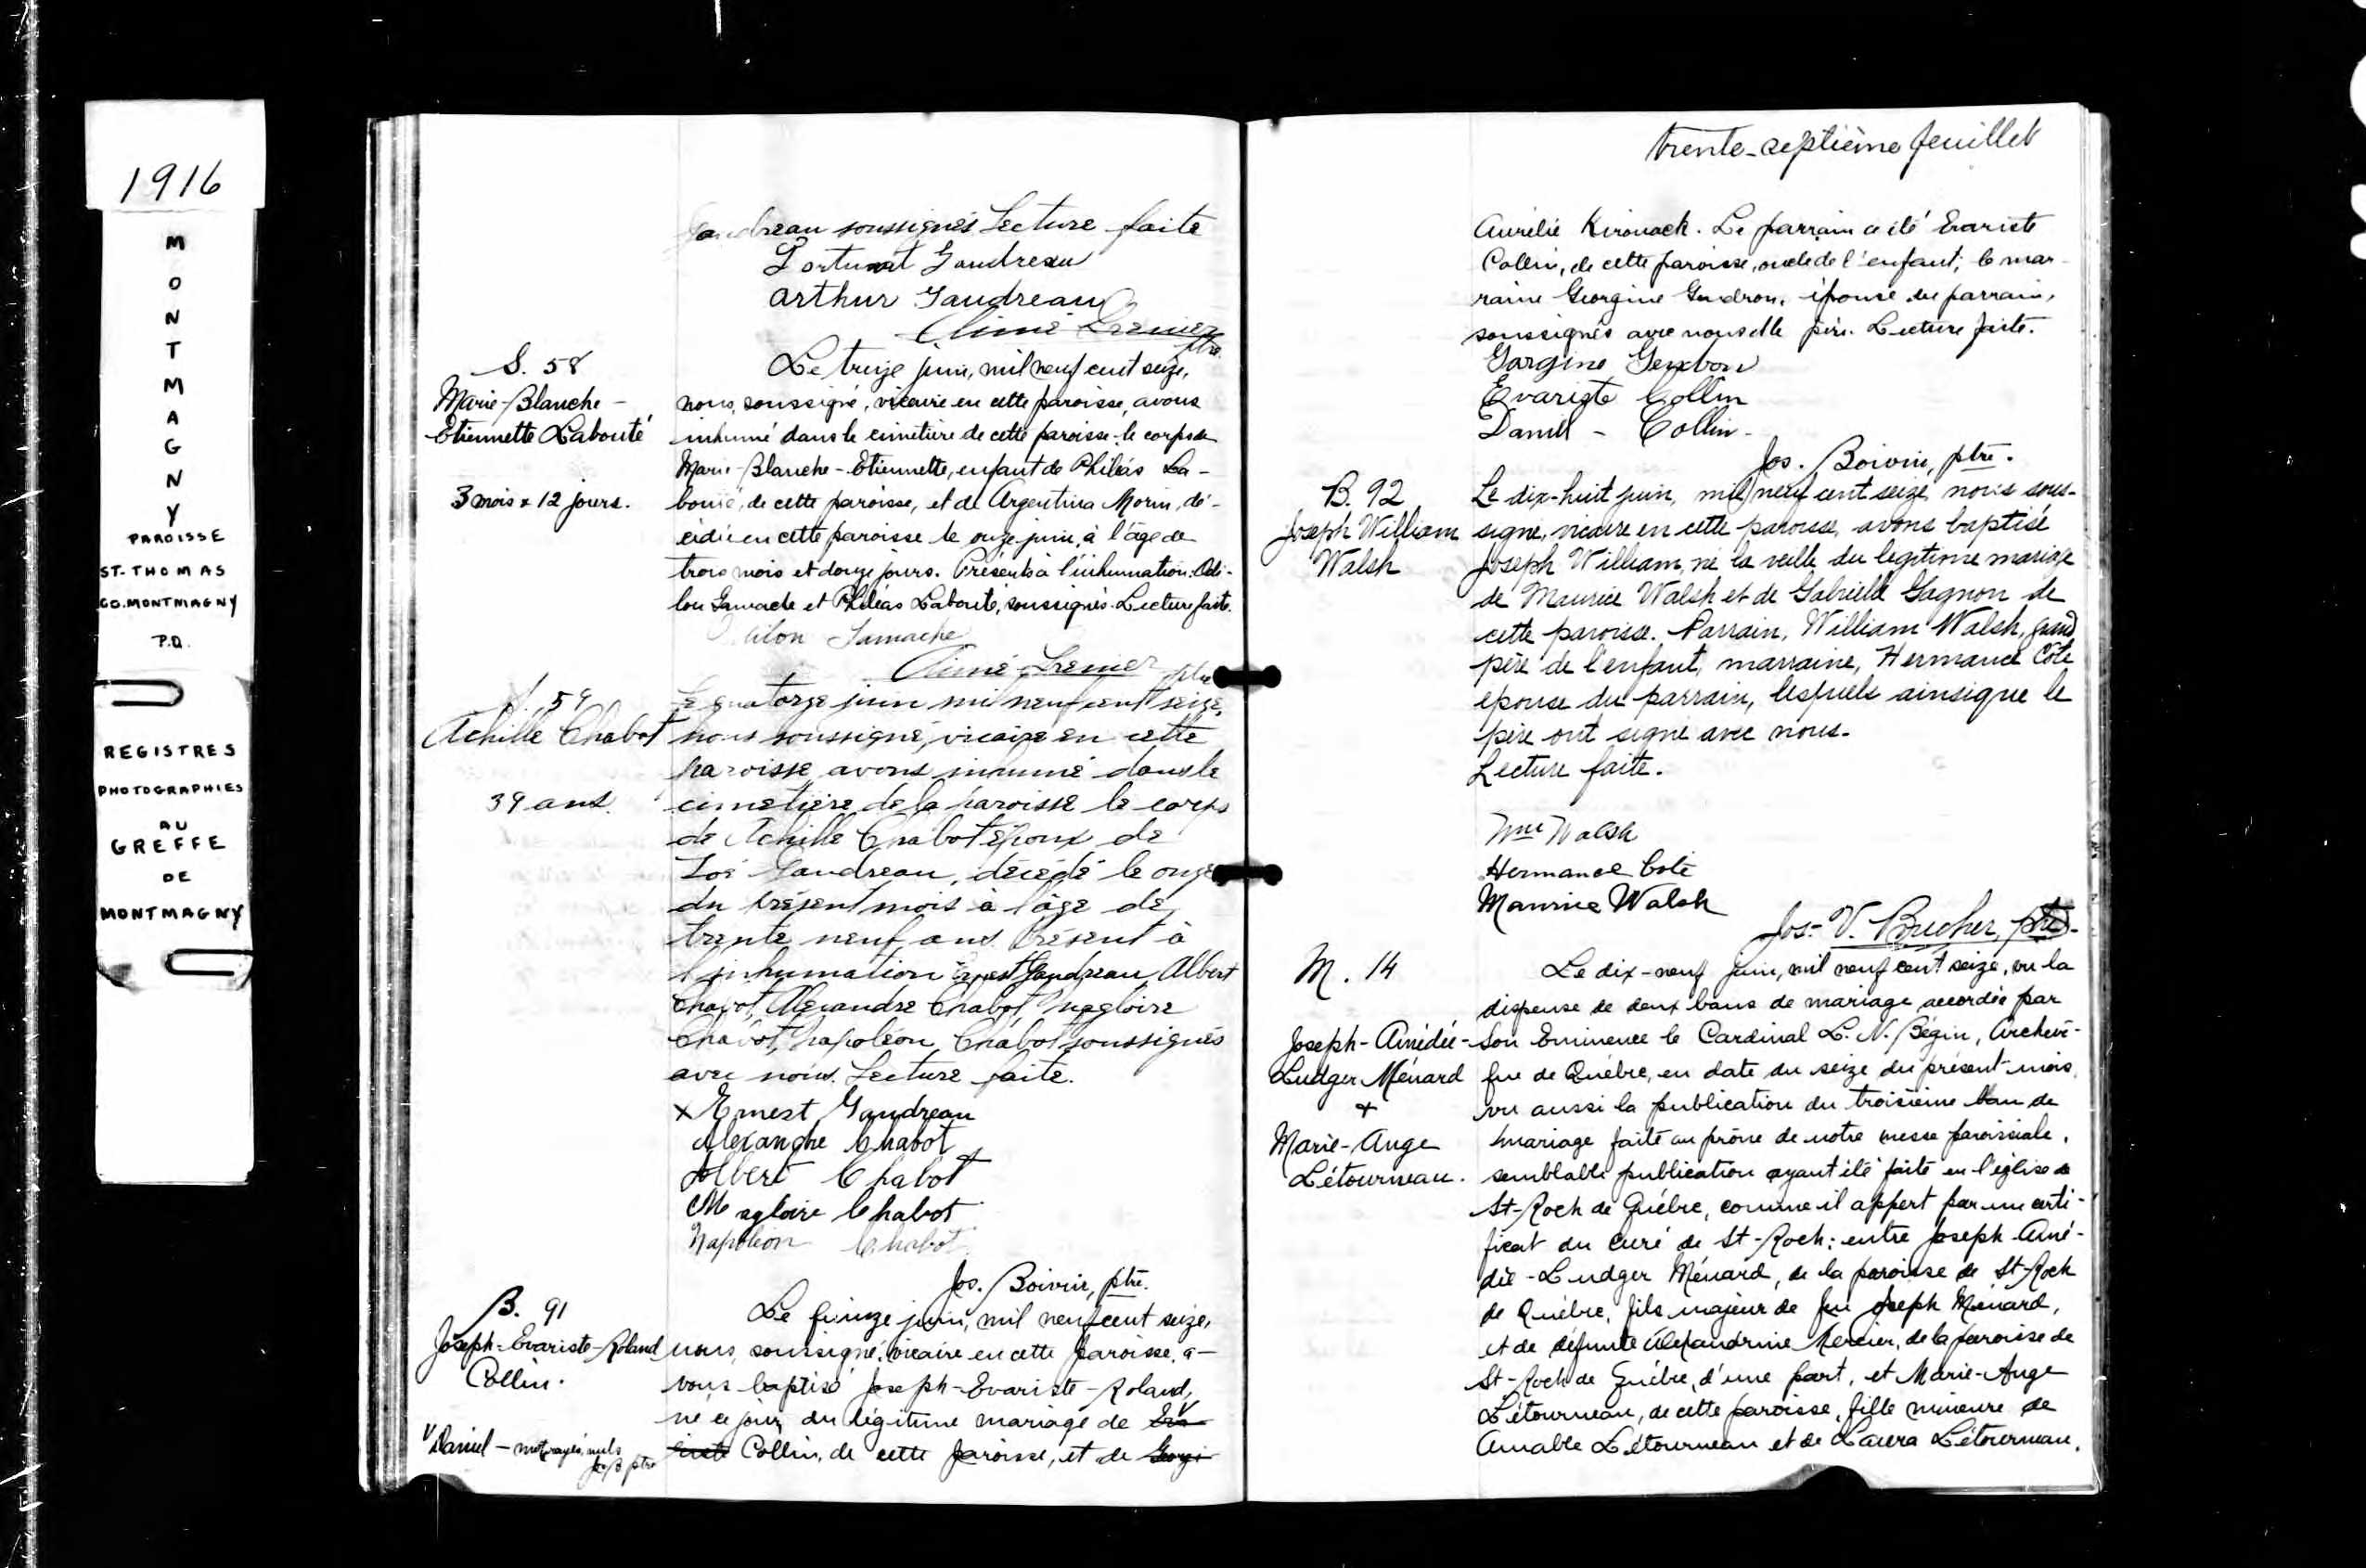 1916
MONTMAGNY
PAROISSE
ST. THOMAS
CO. MONTMAGNY
P.Q.
REGISTRES
PHOTOGRAPHIES
AU
GREFFE
DE
MONTMAGNY
Gaudreau soussignés Lecture faite
Fortunat Gaudreau
Arthur Gaudreau
Aimé Grenier
ptre.
S. 58
Marie-Blanche-
Etiennette Labouté
3 mois & 12 jours.
Le treize juin, mil neuf cent seize,
nous, soussigné, vicaire en cette paroisse, avons
inhumé dans le cimetière de cette paroisse le corps de
Marie-Blanche-Etiennette, enfant de Philéas La-
bouté, de cette paroisse, et de Argentina Morin, dé-
cédée en cette paroisse le onze juin, à l'âge de
trois mois et douze jours. Présents à l'inhumation: Odi-
lon Gamache et Philéas Labouté, soussignés. Lecture faite.
Odilon Gamache
Aimé Grenier ptre
S. 59
Achille Chabot
39 ans.
Le quatorze juin mil neuf cent seize,
nous soussigné, vicaire en cette
paroisse, avons inhumé dans le
cimetière de la paroisse le corps
de Achille Chabot époux de
Zoé Gaudreau, décédé le onze
du présent mois à l'âge de
trente neuf ans. Présent à
l'inhumation Ernest Gaudreau Albert
Chabot, Alexandre Chabot, Magloire
Chabot, Napoléon Chabot soussignés
avec nous. Lecture faite.
x Ernest Gaudreau
Alexandre Chabot
Albert Chabot
Magloire Chabot
Napoléon Chabot
Jos. Boivin, ptre.
B. 91
Joseph-Evariste-Roland
Collin.
v Daniel - mots rayés nuls
ptre
Le quinze juin, mil neuf cent seize,
nous, soussigné, vicaire en cette paroisse, a-
vons baptisé Joseph-Evariste-Roland,
né ce jour du légitime mariage de Eva v
riste Collin, de cette paroisse, et de Georgi
trente-septième feuillet
Aurélie Kirouack. Le parrain a été Evariste
Collin, de cette paroisse, oncle de l'enfant; la mar-
raine Georgine Gendron, épouse du parrain,
soussignés avec nous et le père. Lecture faite.
Gorgine Gendron
Evariste Collin
Daniel - Collin -
Jos. Boivin, ptre.
B. 92
Joseph William
Walsh
Le dix-huit juin, mil neuf cent seize, nous sous-
signé, vicaire en cette paroisse, avons baptisé
Joseph William, né la veille du légitime mariage
de Maurice Walsh et de Gabrielle Gagnon de
cette paroisse. Parrain, William Walsh, grand
père de l'enfant, marraine, Hermance Côté
épouse du parrain, lesquels ainsi que le
père ont signé avec nous.
Lecture faite.
Wm Walsh
Hermance Coté
Maurice Walsh
Jos. V. Boucher, ptre.
M. 14
Joseph-Amédée-
Ludger Ménard
+
Marie-Ange
Létourneau.
Le dix-neuf juin, mil neuf cent seize, vu la
dispense de deux bans de mariage accordée par
Son Eminence le Cardinal L. N. Bégin, Archevê-
que de Québec, en date du seize du présent mois,
vu aussi la publication du troisième ban de
mariage faite au prône de notre messe paroissiale,
semblable publication ayant été faite en l'église de
St-Roch de Québec, comme il appert par un certi-
ficat du curé de St-Roch: entre Joseph-Amé-
dée-Ludger Ménard, de la paroisse de St-Roch
de Québec, fils majeur de feu Joseph Ménard,
et de défunte Alexandrine Mercier, de la paroisse de
St-Roch de Québec, d'une part, et Marie-Ange
Létourneau, de cette paroisse, fille mineure de
Amable Létourneau et de Laura Létourneau,